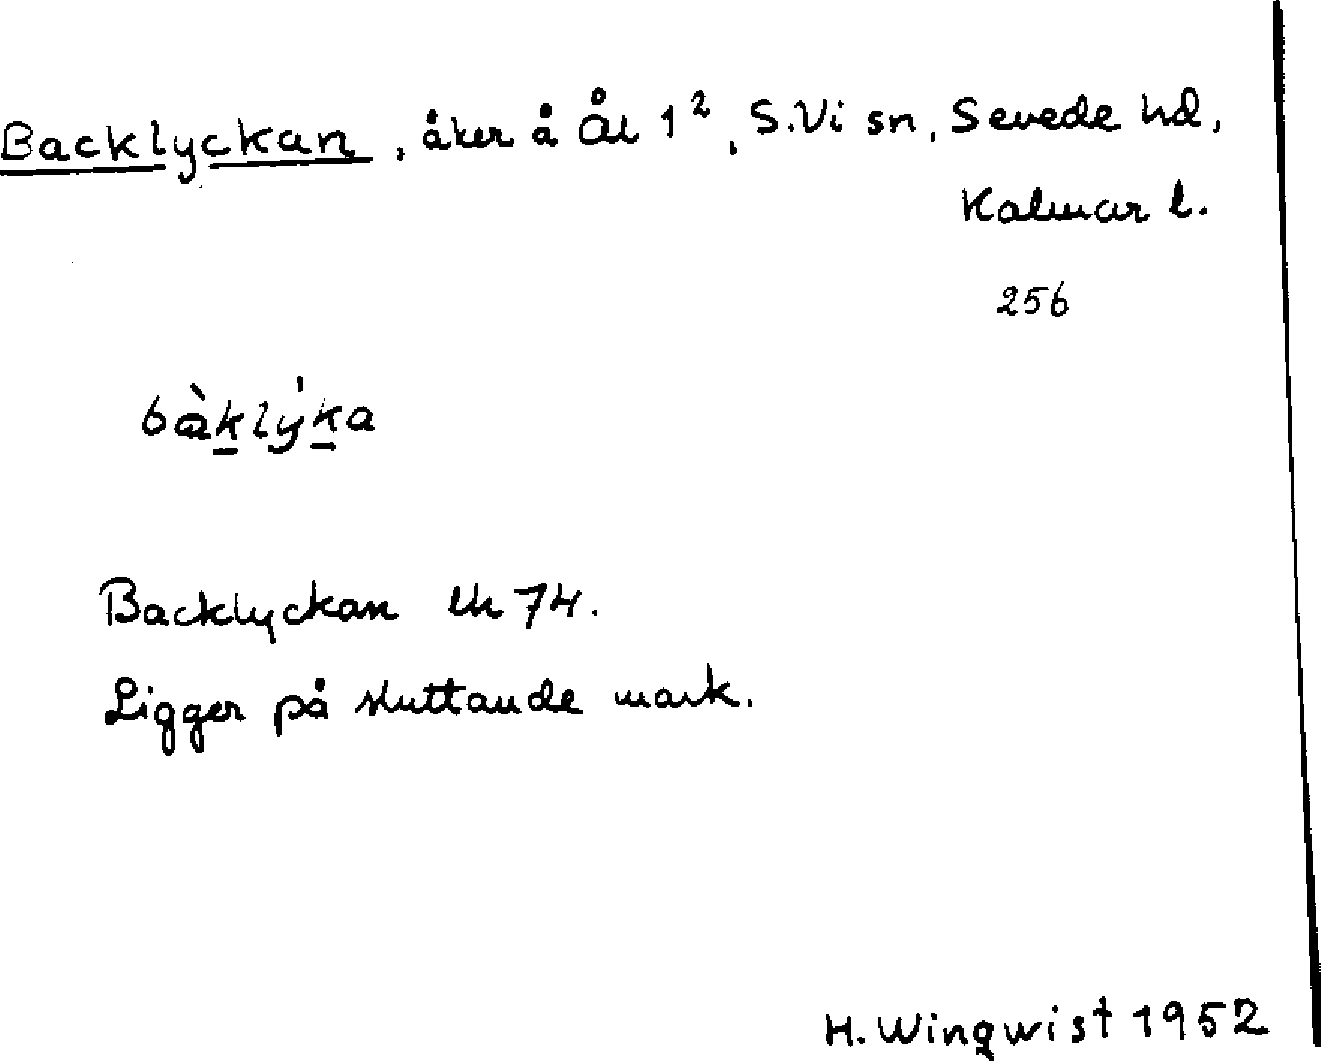 Backlyckan, åker å Ål 1², S.Vi sn, Sevede hd,
Kalmar l.
256
bàk̲lý̀k̲a
Backlyckan lh 74.
Ligger på sluttande mark.
H. Winqwist 1952